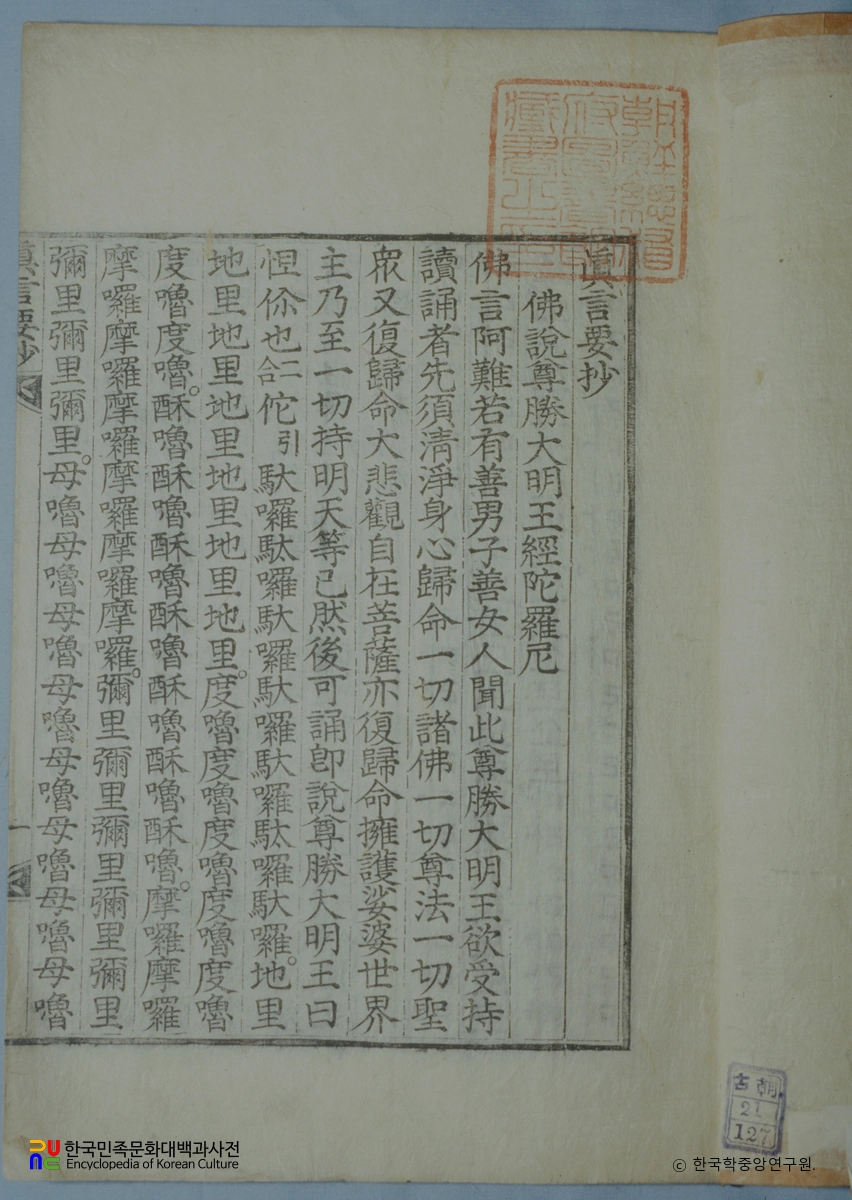 眞言要抄
佛說尊勝大明王經陀羅尼
佛言阿難若有善男子善女人聞此尊勝大明王欲受持
讀誦者先須清淨身心歸命一切諸佛一切尊法一切聖
衆又復歸命大悲觀自在菩薩亦復歸命擁護娑婆世界
主乃至一切持明天等已然後可誦卽說尊勝大明王曰
怛你也二合佗引馱囉馱囉馱囉馱囉馱囉馱囉馱囉。地里
地里地里地里地里地里地里。度嚕度嚕度嚕度嚕度嚕
度嚕度嚕。酥嚕酥嚕酥嚕酥嚕酥嚕酥嚕酥嚕。摩囉摩囉
摩囉摩囉摩囉摩囉摩囉摩囉。彌里彌里彌里彌里彌里
彌里彌里彌里。母嚕母嚕母嚕母嚕母嚕母嚕母嚕母嚕
眞言要抄 一
朝鮮總督府圖書館藏書之印
古朝
21
127
한국민족문화대백과사전
Encyclopedia of Korean Culture
© 한국학중앙연구원.